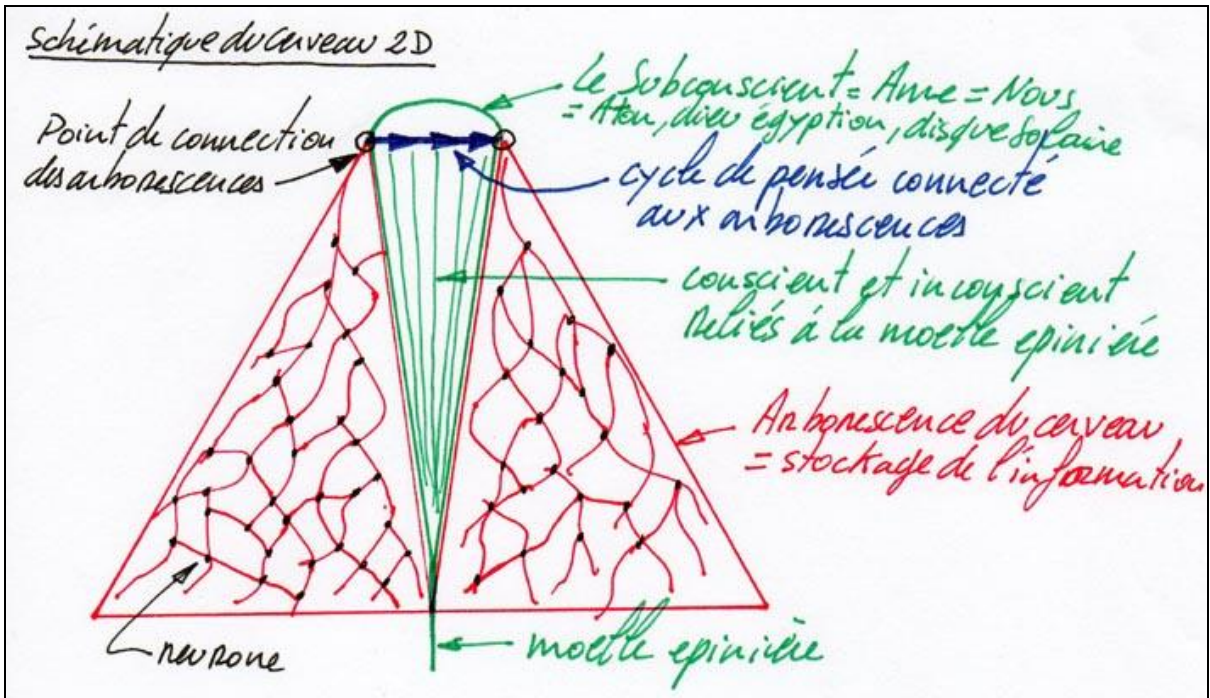 Schématique du cerveau 2D
Le Subconscient = Ame = Nous
= Aton, dieu égyption, disque solaire
Point de connection
des arborescences
cycle de pensée connecté
aux arborescences
conscient et inconscient
reliés à la moelle epinière
Arborescence du cerveau
= stockage de l'information
neurone
moelle epinière